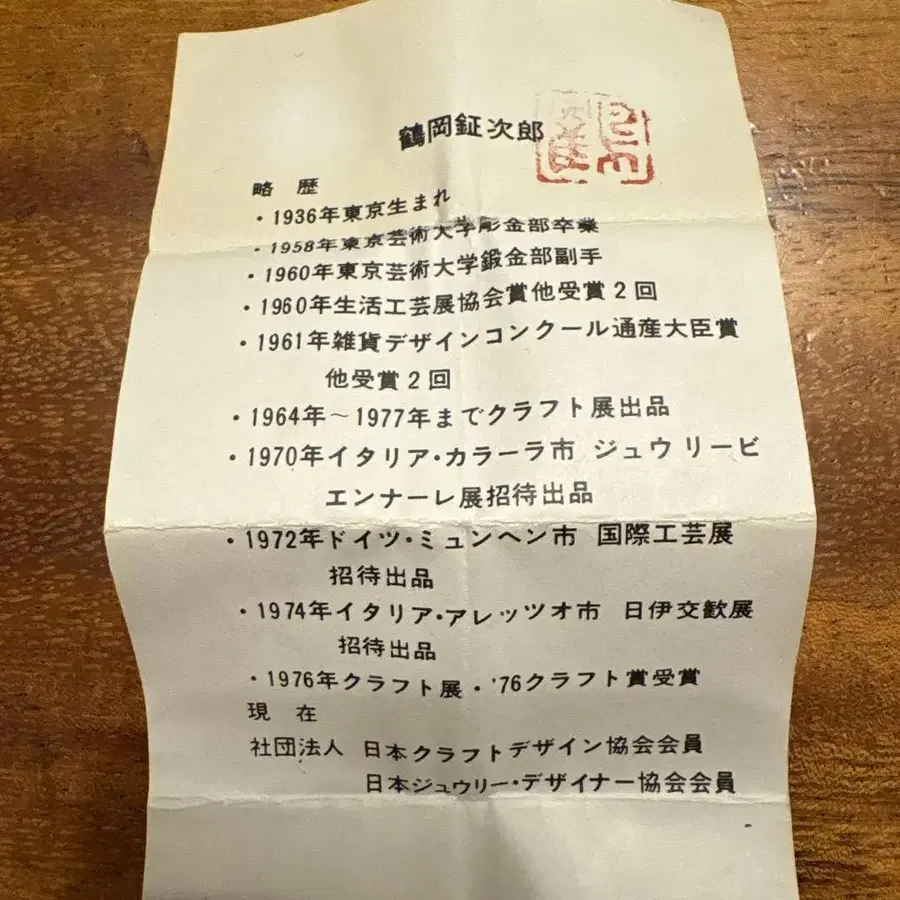 鶴岡鉦次郎
略 歴
・1936年東京生まれ
・1958年東京芸術大学彫金部卒業
・1960年東京芸術大学鍛金部副手
・1960年生活工芸展協会賞他受賞2回
・1961年雑貨デザインコンクール通産大臣賞
他受賞2回
・1964年～1977年までクラフト展出品
・1970年イタリア・カラーラ市 ジュウリービ
エンナーレ展招待出品
・1972年ドイツ・ミュンヘン市 国際工芸展
招待出品
・1974年イタリア・アレッツオ市 日伊交歓展
招待出品
・1976年クラフト展・'76クラフト賞受賞
現 在
社団法人 日本クラフトデザイン協会会員
日本ジュウリー・デザイナー協会会員